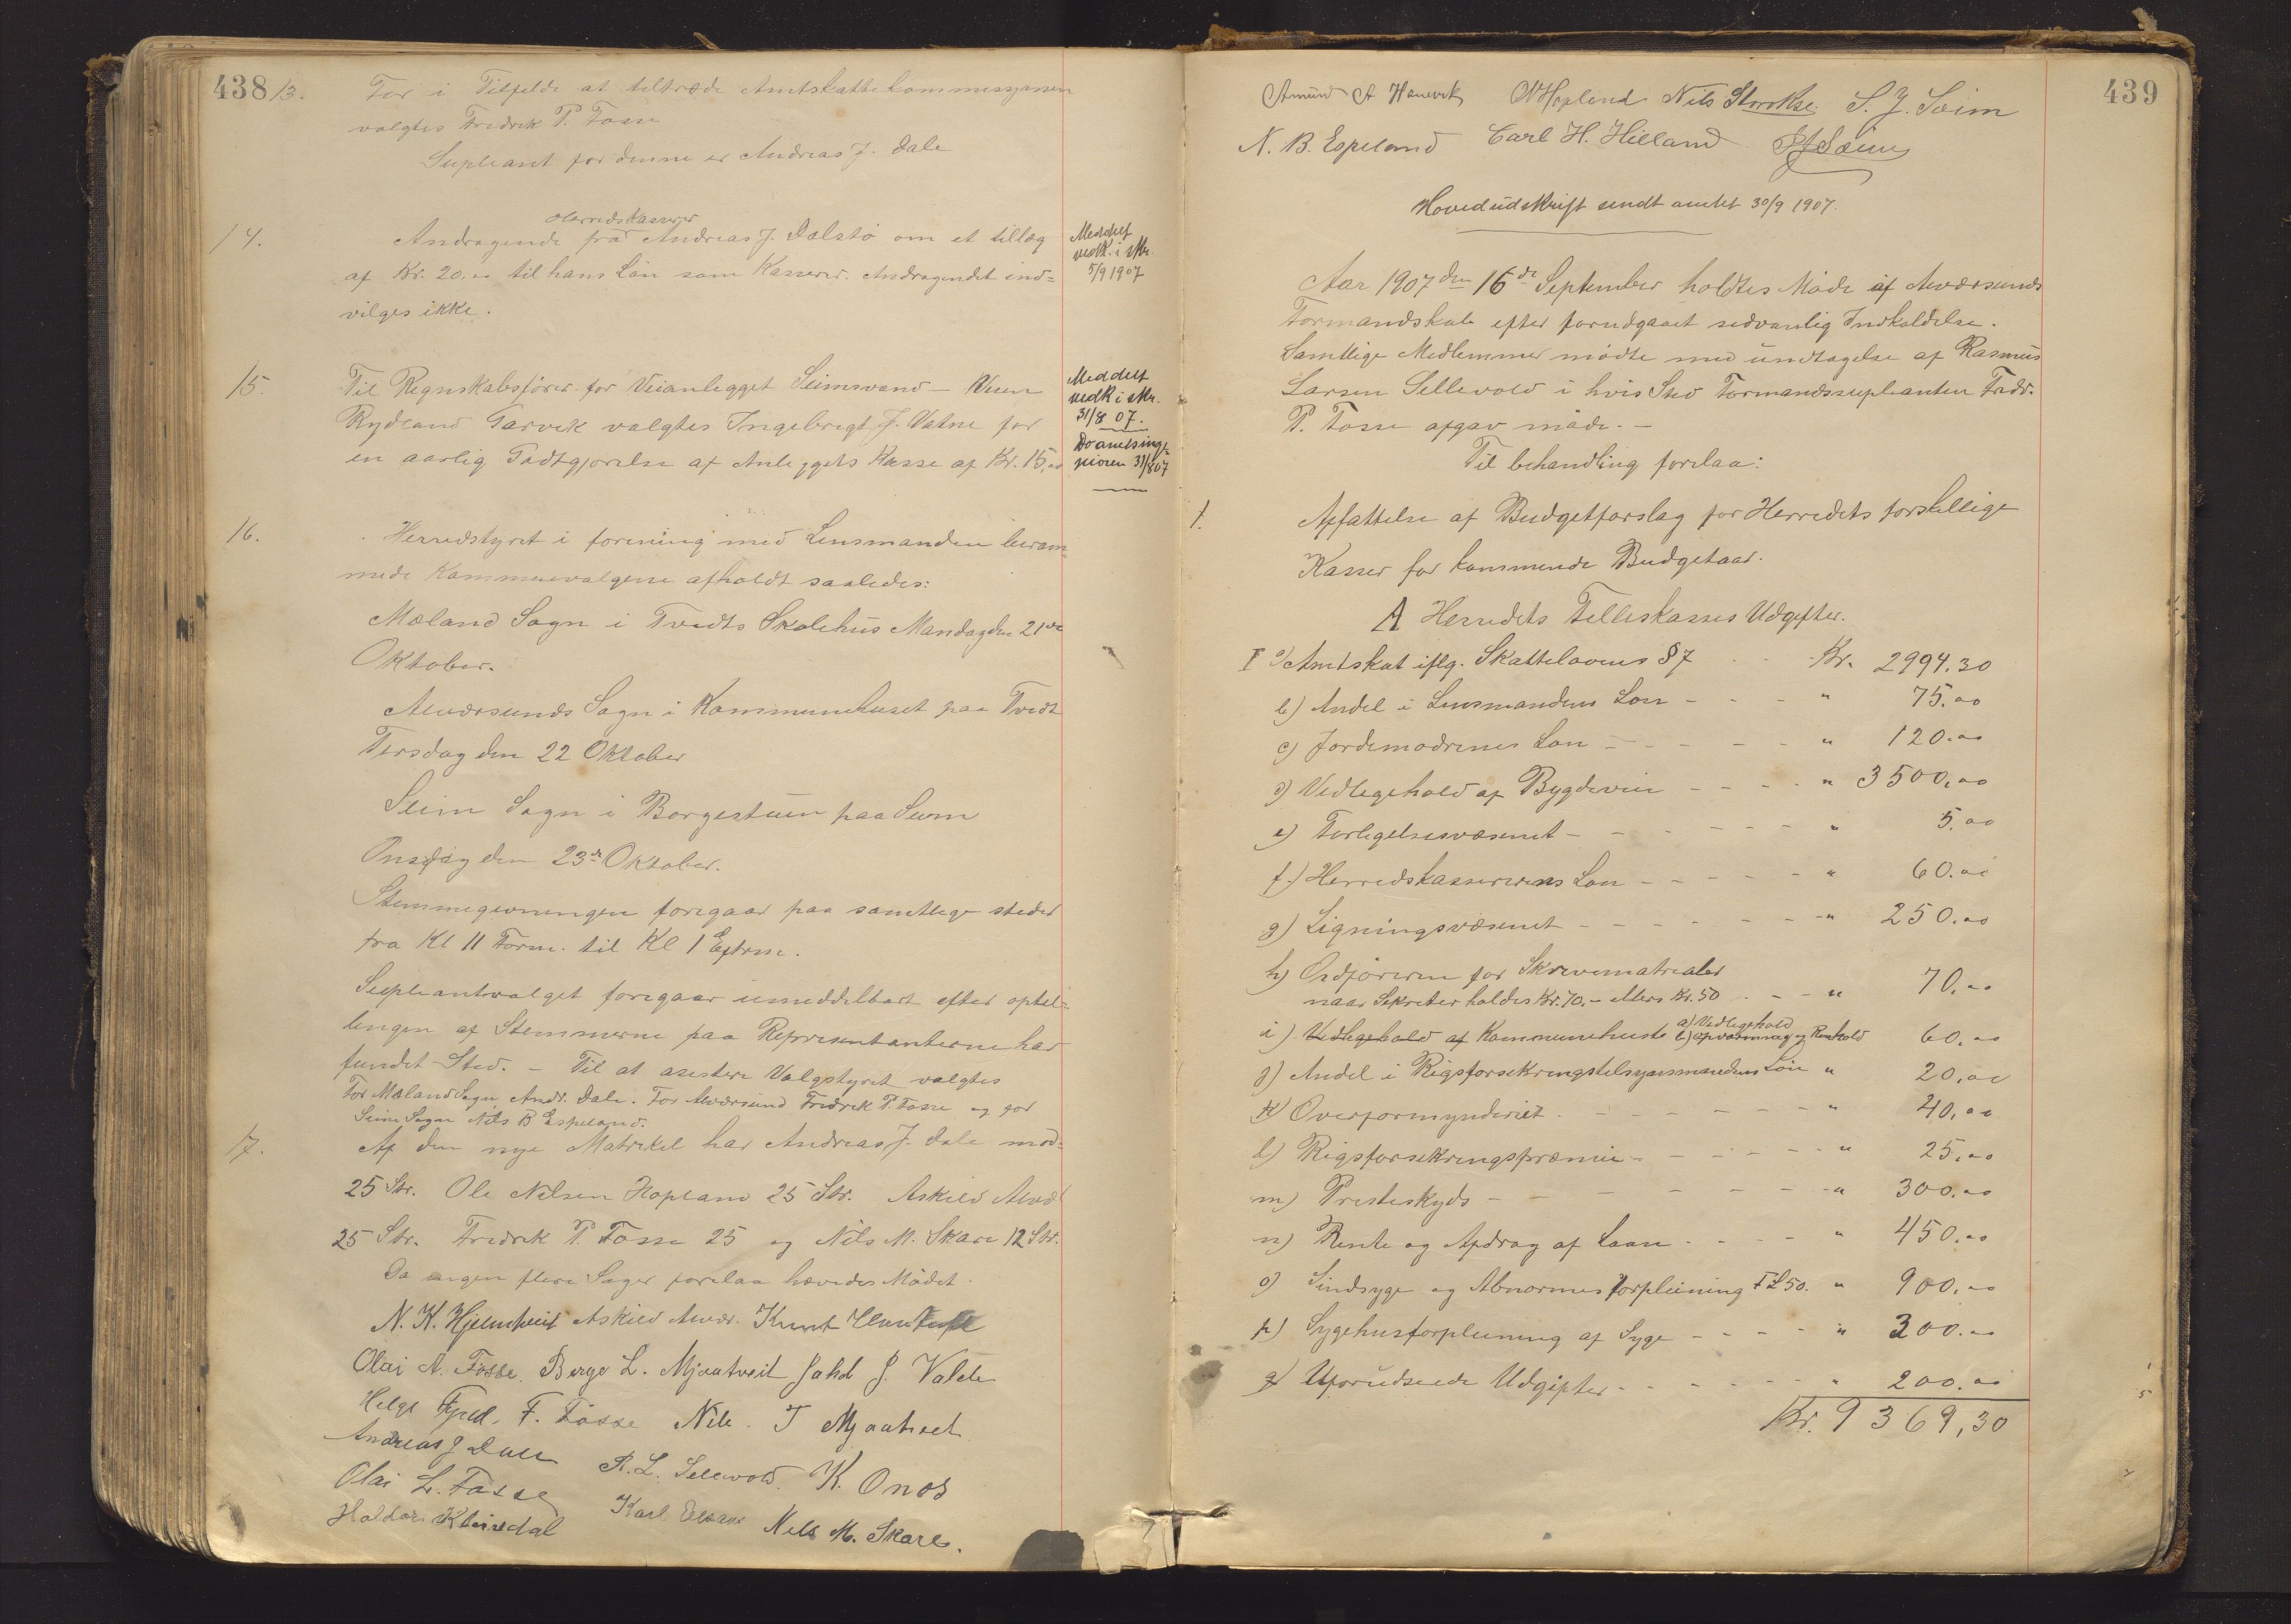 438
13. For i Tilfelde at tiltræde Amtskattekommissjonen
valgtes Fredrik P. Fosse
Supleant for denne er Andreas J. Dale
14. Andragende fra Herredskasserer Andreas J. Dalstø om et tillæg
af Kr. 20.00 til hans Løn som Kasserer. Andragendet ind=
vilges ikke.
Meddelt
vedk. i skr.
5/9 1907
15. Til Regnskabsfører for Veianlegget Seimsvand -
Rydland Garvik valgtes Ingebrigt J. Vatne for
en aarlig Godtgjørelse af Anleggets Kasse af Kr. 15,00
Meddelt
vedk i skr.
31/8 07.
Do amtsinge=
niøren 31/8 07
16. Herredstyret i forening med Lensmanden beram=
mede Kommunevalgene afholdt saaledes:
Mæland Sogn i Tvedts Skolehus Mandag den 21de
Oktober.
Alværsunds Sogn i Kommunehuset paa Tvedt
Tirsdag den 22 Oktober
Seim Sogn i Borgestuen paa Seim
Onsdag den 23de Oktober.
Stemmegivningen foregaar paa samtlige steder
fra Kl 11 Form. til Kl 1 Efterm.
Supleantvalget foregaar umiddelbart efter optel=
lingen af Stemmerne paa Representanterne har
fundet Sted. - Til at asistere Valgstyret valgtes
For Mæland Sogn Andr. Dale. For Alværsund Fredrik P. Fosse og for
Seim Sogn Nils B Espeland.
17. Af den nye Matrikel har Andreas J. Dale mod=
25 Str. Ole Nilsen Hopland 25 Str. Askild Alvær
25 Str. Fredrik P. Fosse 25 og Nils M. Skare 12 Str.
Da ingen flere Sager forelaa hævedes Mødet.
N. K. Hjelmtveit Askild Alvær. Knut
Olai A. Fosse. Berge L. Mjaatveit Jakob J. Valde
Helge F. Fosse Nils T Mjaatveit
Andreas J Dale R. L. Sellevold. K. Onos
Olai L. Fosse Karl Nils M. Skare.
Haldor Kleivdal
439
Amund A Hanevik O N Hopland Nils S. J. Seim
N. B. Espeland Carl H. Hilland
Hovedudskrift sendt amtet 30/9 1907.
Aar 1907 den 16de September holdtes Møde af Alværsunds
Formandskab efter forudgaaet sedvanlig Indkaldelse.
Samtlige Medlemmer mødte med undtagelse af Rasmus
Larsen Sellevold i hvis Sted Formandssupleanten Fredr.
P. Fosse afgav møde. -
Til behandling forelaa:
1. Affattelse af Budgetforslag for Herredets forskellige
Kasser for kommende Budgetaar.
A Herredets Felleskasses Udgifter.
I a) Amtskat iflg. Skattelovens § 7 - - Kr. 2994.30
b) Andel i Lensmandens Løn - - - " 75.00
c) Jordemødrenes Løn - - - - " 120.00
d) Vedlegehold af Bygdeveie - - - - " 3500,00
e) Forligelsesvæsenet - - - - - " 5,00
f) Herredskassererens Løn - - - - - " 60.00
g) Ligningsvæsenet - - - - - - " 250.00
h) Ordføreren for Skrivematrialer
naar Sekretær holdes Kr. 70.- ellers Kr. 50 - - " 70,00
i) Vedlegehold af Kommunehuset a) Vedlegehold b) opvarmning og Renhold 60,00
j) Andel i Rigsforsekringstilsynsmandens Løn " 20,00
k) Overformynderiet - - - - - - " 40,00
l) Rigsforsekringspræmie - - - - - " 25,00
m) Presteskyds - - - - - - " 300,00
n) Rente og Afdrag af Laan - - - - " 450,00
o) Sindsyge og Abnormes forpleining " 900,00
p) Sygehusforpleining af Syge - - - - " 300.00
q) Uforudseede Udgifter - - - - - " 200.00
Kr. 9369,30